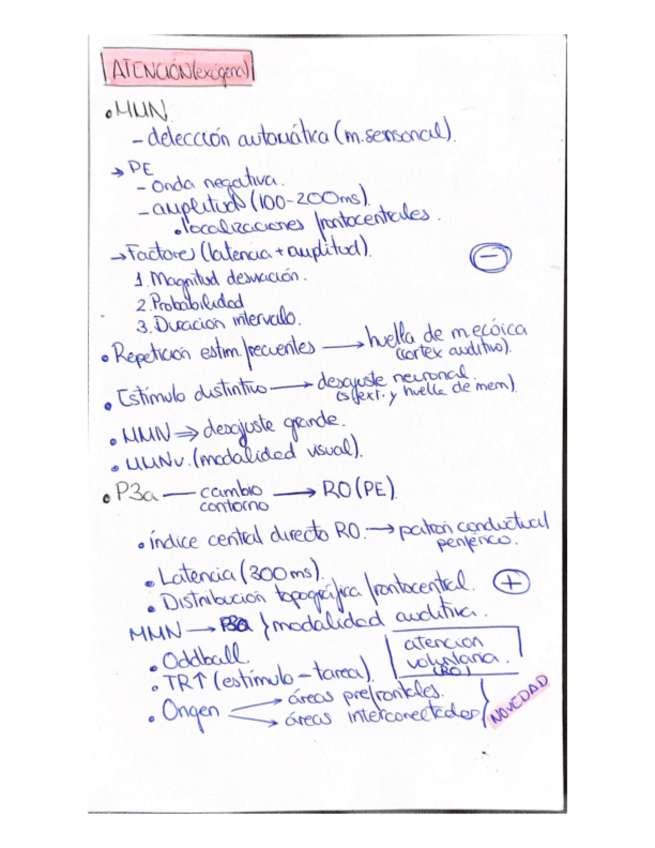 ATENCIÓN (exógena)
• MMN
- detección automática (m. sensorial).
→ PE
- Onda negativa.
- amplitud (100-200ms).
• localizaciones frontocentrales.
→ Factores (latencia + amplitud).
−
1. Magnitud desviación.
2. Probabilidad
3. Duración intervalo.
• Repetición estím. frecuentes → huella de m. ecóica
(cortex auditivo).
• Estímulo distintivo → desajuste neuronal.
(s. ext. y huella de mem).
• MMN ⇒ desajuste grande.
• MMNv. (modalidad visual).
• P3a — cambio contorno → RO (PE).
• índice central directo RO. → patrón conductual
periférico.
• Latencia (300ms).
• Distribución topográfica frontocentral. +
MMN → P3a } modalidad auditiva.
• Oddball
• TR↑ (estímulo - tarea).
atención
voluntaria.
(RO)
• Origen → áreas prefrontales.
→ áreas interconectadas } NOVEDAD